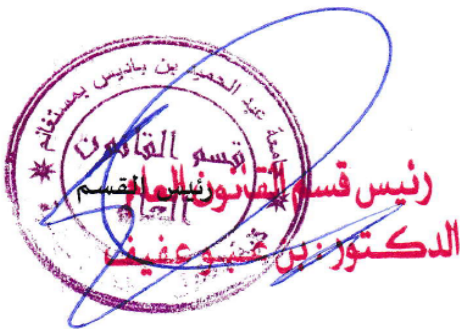 جامعة عبد الحميد بن باديس بمستغانم
قسم القانون
العام
رئيس القسم
رئيس قسم القانون العام
الدكتور : بن عفيف